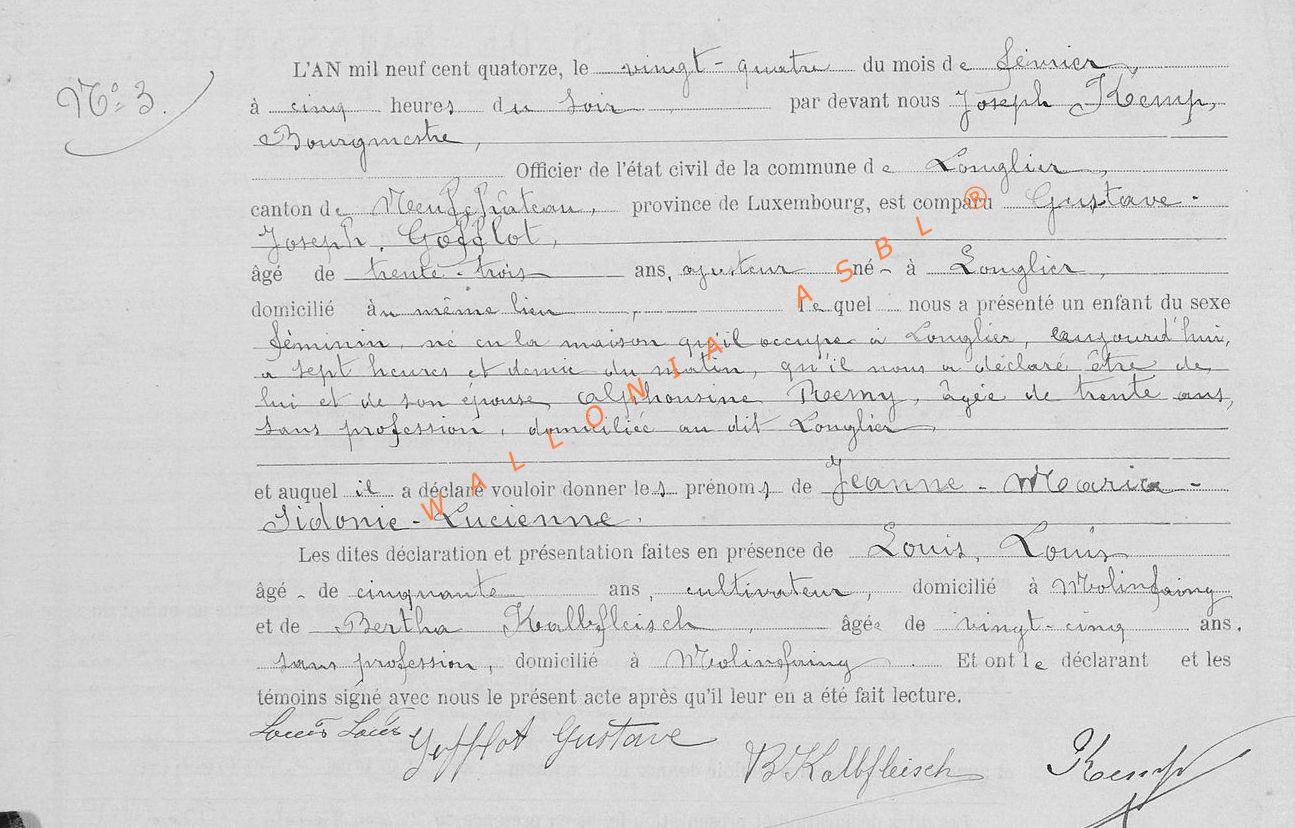 N° 3.
L'AN mil neuf cent quatorze, le vingt-quatre du mois de février,
à cinq heures du soir par devant nous Joseph Kemp,
Bourgmestre,
Officier de l'état civil de la commune de Longlier,
canton de Neufchâteau, province de Luxembourg, est comparu Gustave-
Joseph. Gofflot,
âgé de trente-trois ans, ajusteur né à Longlier,
domicilié au même lieu, lequel nous a présenté un enfant du sexe
féminin, né en la maison qu'il occupe à Longlier, aujourd'hui,
à sept heures et demie du matin, qu'il nous a déclaré être de
lui et de son épouse Alphonsine Remy, âgée de trente ans,
sans profession, domiciliée au dit Longlier
et auquel il a déclaré vouloir donner les prénoms de Jeanne-Maria-
Sidonie-Lucienne.
Les dites déclaration et présentation faites en présence de Louis, Louis
âgé de cinquante ans, cultivateur, domicilié à Molinfaing
et de Bertha Kalbfleisch, âgée de vingt-cinq ans,
sans profession, domicilié à Molinfaing. Et ont le déclarant et les
témoins signé avec nous le présent acte après qu'il leur en a été fait lecture.
Louis Louis Gofflot Gustave B Kalbfleisch Kemp
WALLONIA ASBL ®